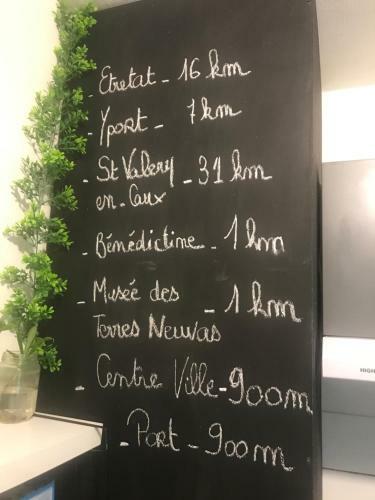 - Etretat - 16 km
- Yport - 7 km
- St Valery - 31 km
en-Caux
- Bénédictine - 1 km
- Musée des - 1 km
Terres Neuvas
- Centre Ville - 900m
- Port - 900m
HIGH